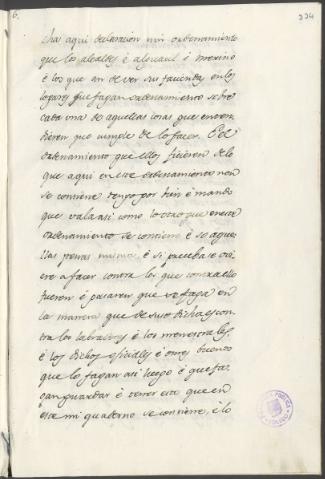 6.
334
cha aqui declaracion nin ordenamiento
que los alcaldes é alguacil é merino
é los que an de ver sus faciendas en los
logares que fagan ordenamiento sobre
cada una de aquellas cosas que enten
dieren que cumple de lo facer. E el
ordenamiento que ellos ficieren de lo
que aqui en este ordenamiento non
se contiene tengo por bien é mando
que vala asi como lo otro que en este
ordenamiento se contiene é so aque
llas penas mismas é si pecuba se ovi
ere a facer contra los que contra ello
fueren é pasaren que se faga en
la manera que de suso dicha es con
tra los labradores é los menestrales
é los dichos oficiales é omes buenos
que lo fagan asi luego é que fa
gan guardar é tener esto que en
este mi quaderno se contiene, é lo